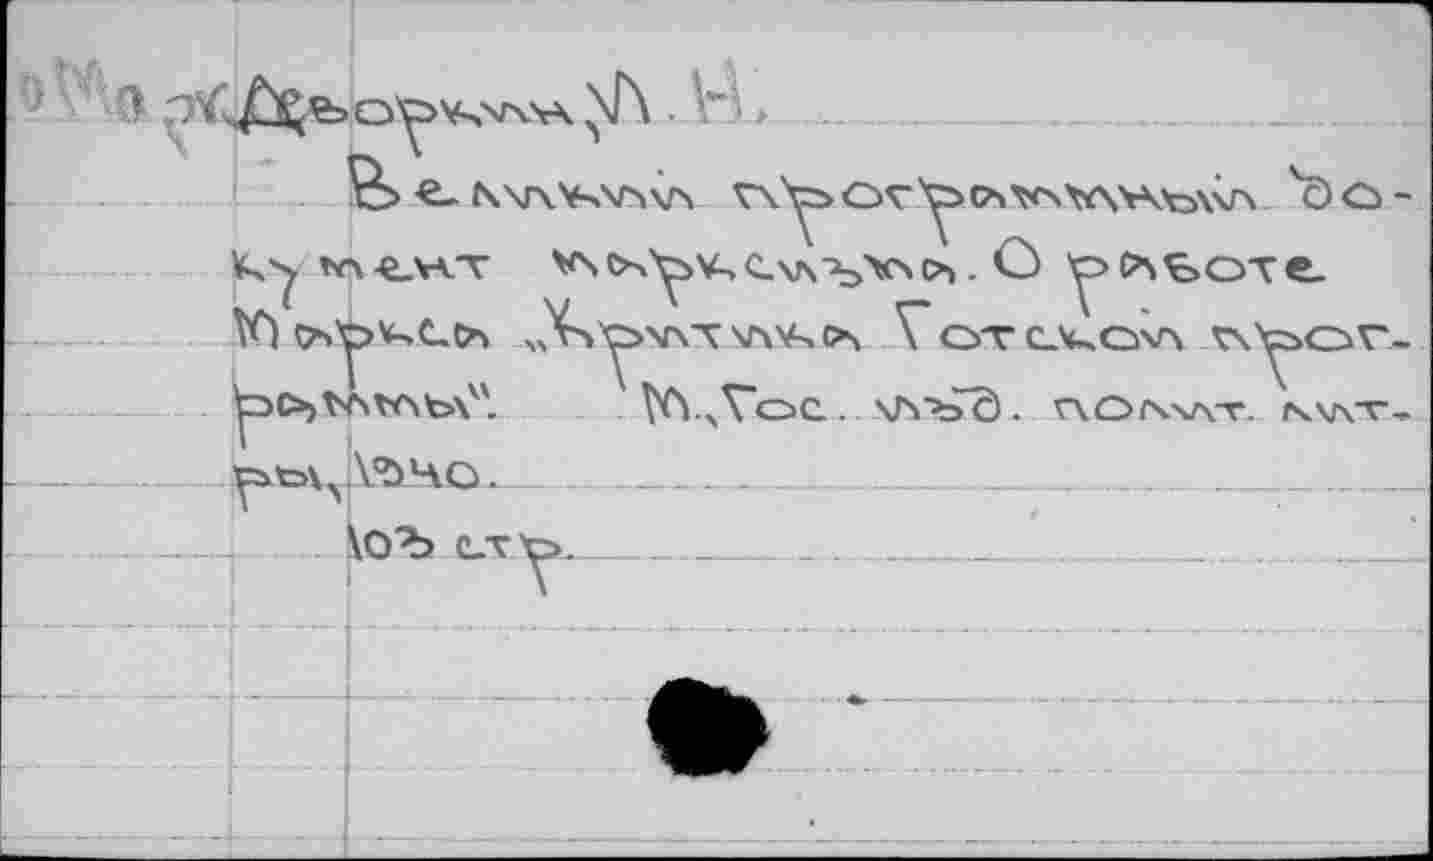 Дворкин, И. Н.
Великий программный до-
кумент марксизма. О работе
Маркса „Критика Готской прог-
раммы". М., Гос. изд. полит. лит-
ры, 1940.
103 стр.